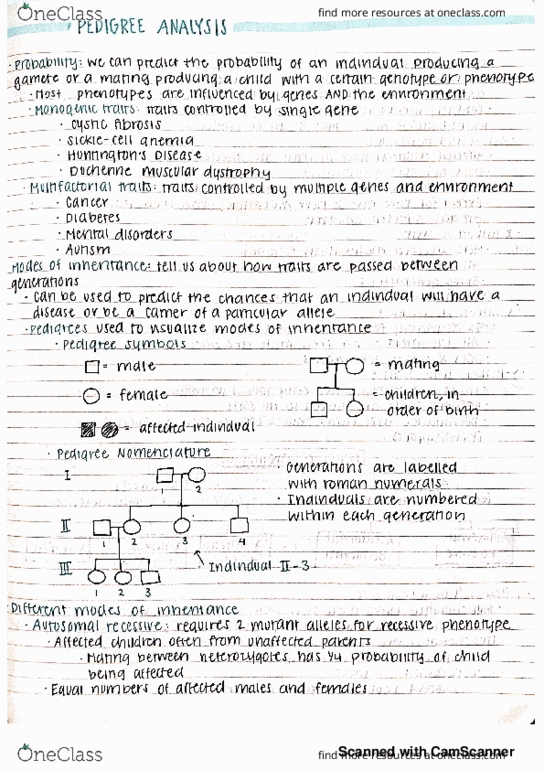 OneClass
find more resources at oneclass.com
PEDIGREE ANALYSIS
· Probability: we can predict the probability of an individual producing a
gamete or a mating producing a child with a certain genotype or phenotype
· Most phenotypes are influenced by genes AND the environment
· Monogenic traits: traits controlled by single gene
· Cystic fibrosis
· Sickle-cell anemia
· Huntington's Disease
· Duchenne muscular dystrophy
· Multifactorial traits: traits controlled by multiple genes and environment
· Cancer
· Diabetes
· Mental disorders
· Autism
Modes of inheritance: tell us about how traits are passed between
generations
· Can be used to predict the chances that an individual will have a
disease or be a carrier of a particular allele
· Pedigrees used to visualize modes of inheritance
· Pedigree symbols
= male
= mating
= female
= children, in
order of birth
= affected individual
· Pedigree Nomenclature
I
1 2
· Generations are labelled
with roman numerals
· Individuals are numbered
within each generation
II
1 2 3 4
Individual II-3
III
1 2 3
Different modes of inheritance
· Autosomal recessive: requires 2 mutant alleles for recessive phenotype
· Affected children often from unaffected parents
· Mating between heterozygotes has 1/4 probability of child
being affected
· Equal numbers of affected males and females
OneClass
find more resources at oneclass.com
Scanned with CamScanner